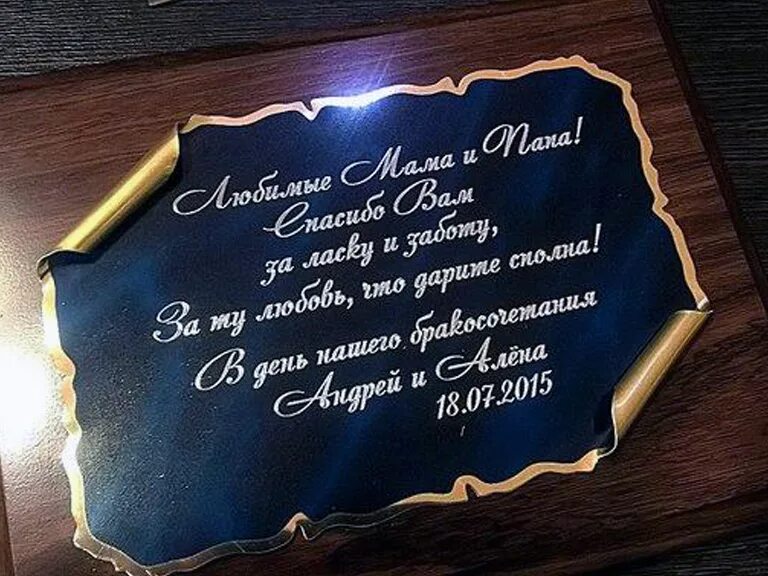 Любимые Мама и Папа!
Спасибо Вам
за ласку и заботу,
За ту любовь, что дарите сполна!
В день нашего бракосочетания
Андрей и Алёна
18.07.2015